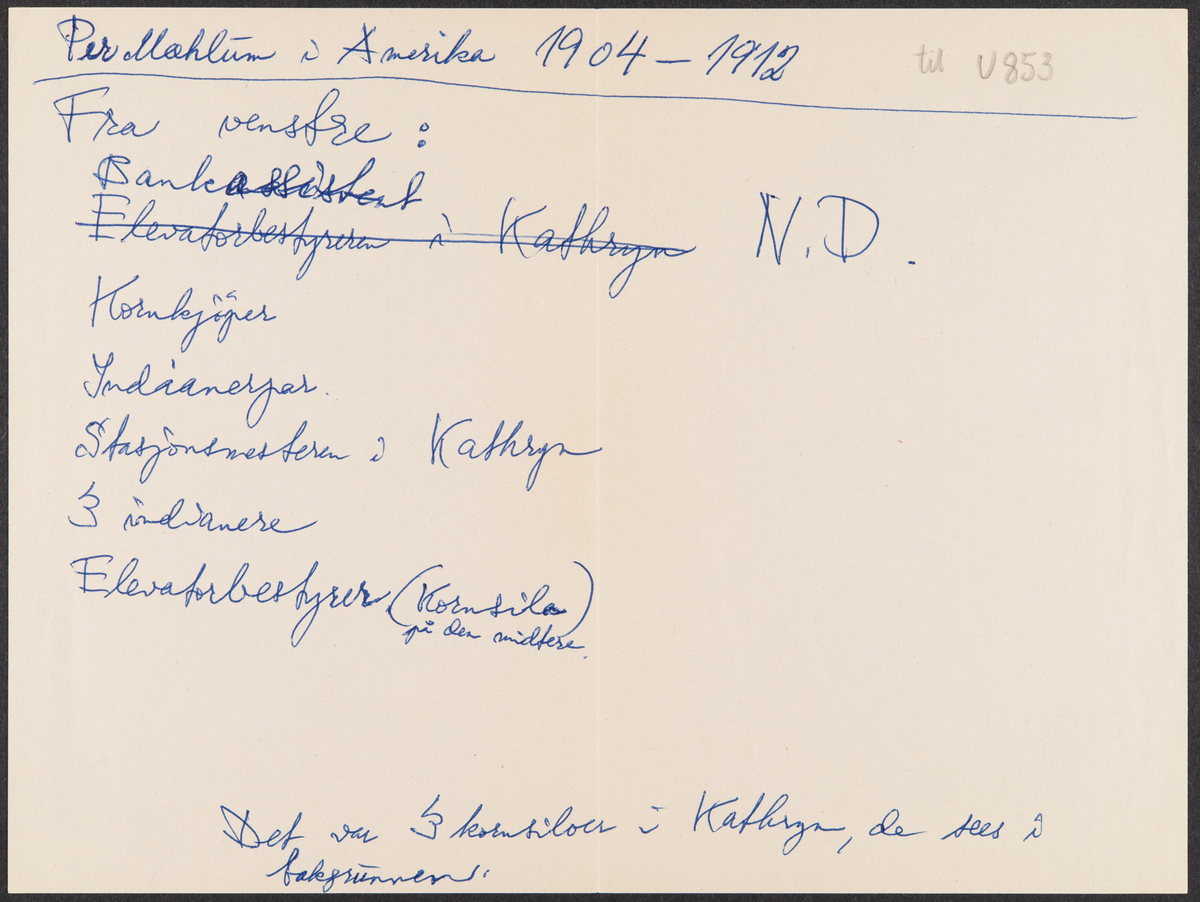 Per Mæhlum i Amerika 1904 – 1912 til U853
Fra venstre :
Bankassistent
Elevatorbestyreren i Kathryn N.D.
Kornkjöper
Indianerpar.
Stasjonsmesteren i Kathryn
3 indianere
Elevatorbestyrer (Kornsilo)
på den midtere.
Det var 3 kornsiloer i Kathryn, de sees i
bakgrunnen.